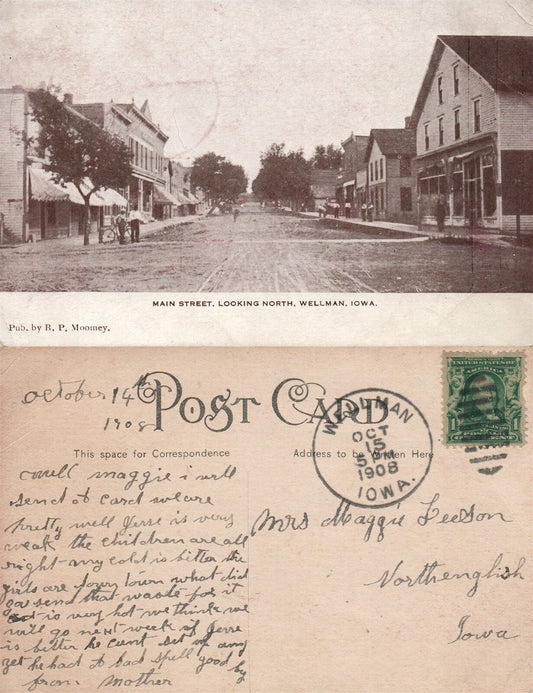 MAIN STREET, LOOKING NORTH, WELLMAN, IOWA.
Pub. by R. P. Moomey.
october 14th
1908
POST CARD
This space for Correspondence
Address to be Written Here
WELLMAN
OCT
15
5 PM
1908
IOWA.
UNITED STATES OF
1 1
well maggie i will
send a card we are
pretty well Jesse is very
weak the children are all
right my cold is better the
girls are down town what did
you send that waste for it
is very hot we think we
will go next week if Jesse
is better he cant set up any
yet he had to bad spell good by
from Mother
Mrs Maggie Leeson
Northenglish
Iowa